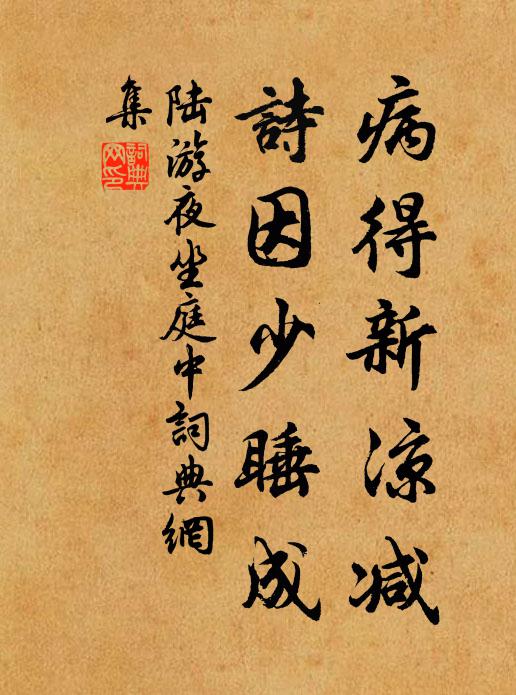 病得新凉减
詩因少睡成
陆游夜坐庭中詞典網
集
詞典網印